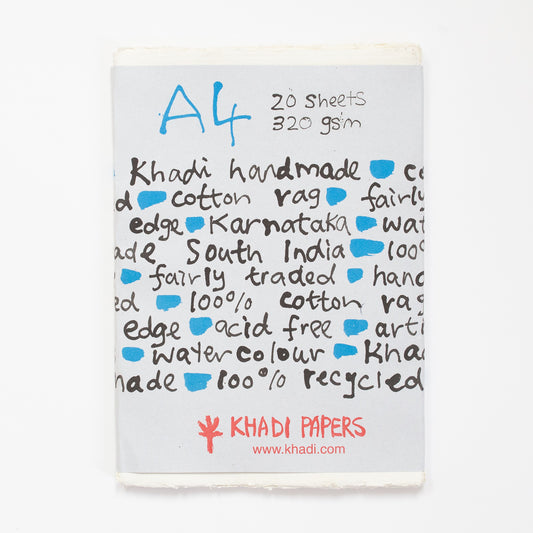 A4 20 sheets
320 gsm
Khadi handmade co
d cotton rag fairly
edge Karnataka wat
ade South India 100%
fairly traded hand
ed 100% cotton rag
edge acid free arti
watercolour Kha
nade 100% recycled
KHADI PAPERS
www.khadi.com